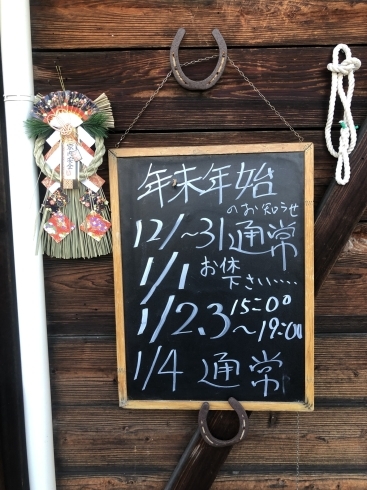 年末年始
のお知らせ
12/~31通常
1/1 お休
下さい・・・・
1/2.3 15:00
~19:00
1/4 通常